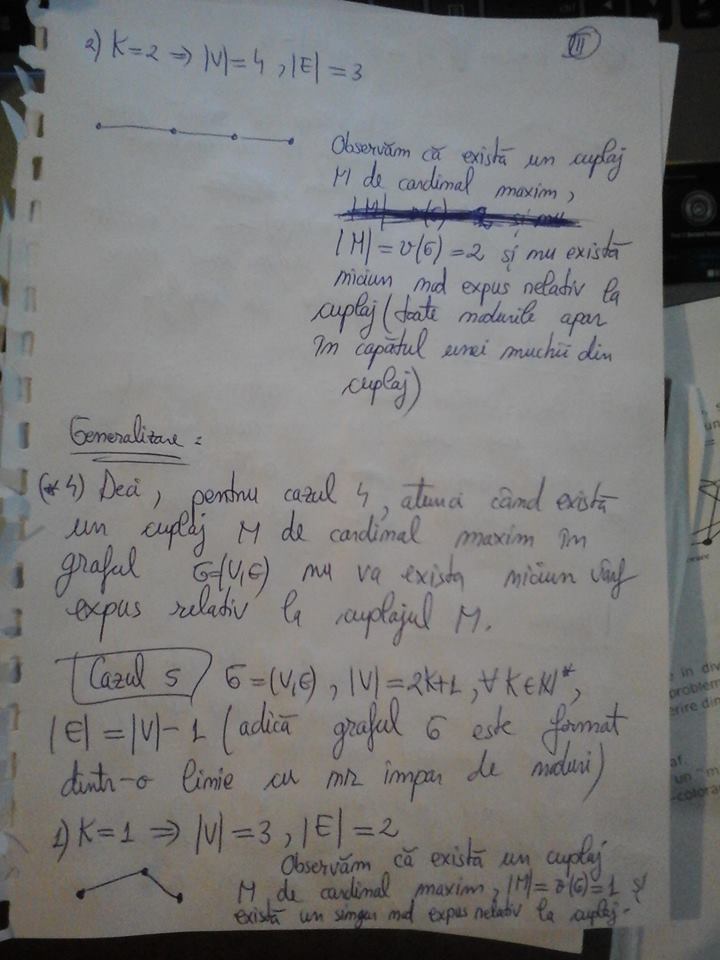 III
2) K=2 ⇒ |V|=4, |E|=3
Observăm că există un cuplaj
M de cardinal maxim,
|M|=ν(G)=2 și nu există
niciun nod expus relativ la
cuplaj (toate nodurile apar
în capătul unei muchii din
cuplaj)
Generalizare:
(*4) Deci, pentru cazul 4, atunci când există
un cuplaj M de cardinal maxim în
graful G=(V,E) nu va exista niciun vârf
expus relativ la cuplajul M.
Cazul 5 G=(V,E), |V|=2K+1, ∀ K∈N*,
|E|=|V|-1 (adică graful G este format
dintr-o linie cu nr impar de noduri)
1) K=1 ⇒ |V|=3, |E|=2
Observăm că există un cuplaj
M de cardinal maxim, |M|=ν(G)=1 și
există un singur nod expus relativ la cuplaj.
un
e în div
problem
erire din
af.
un "m
-colorar